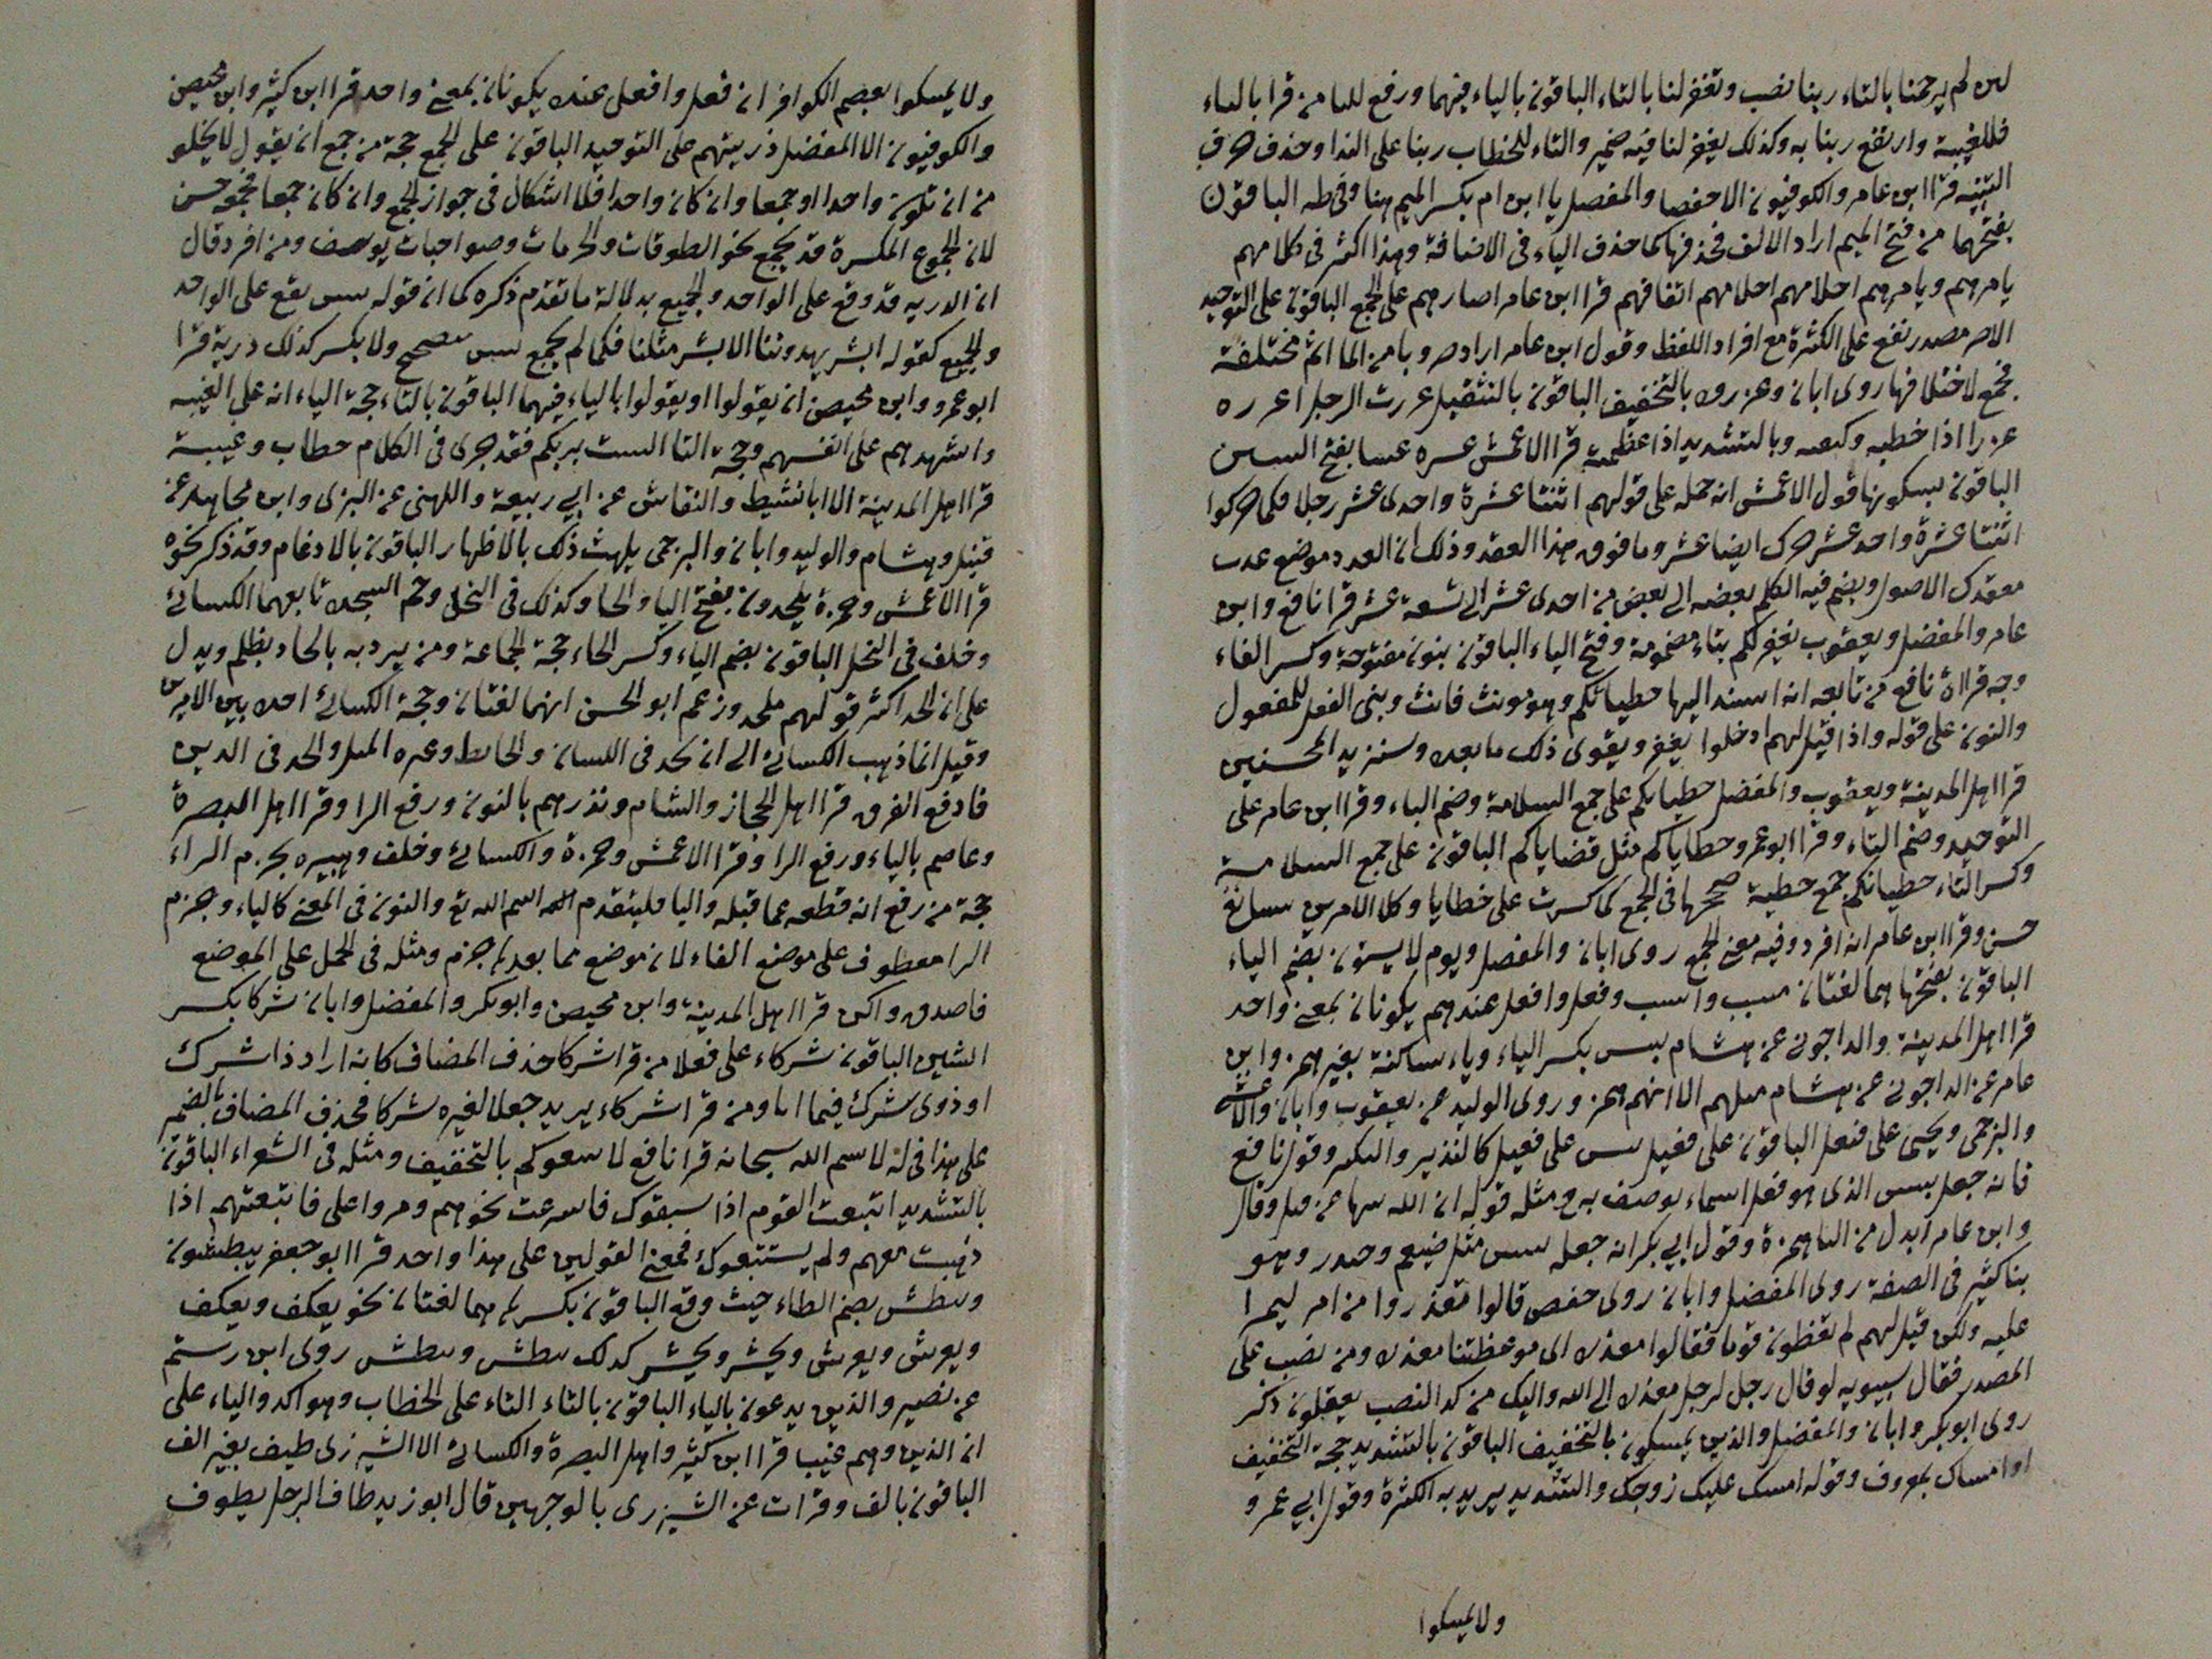 لئن لم يرحمنا بالتاء ربنا نصب وتغفر لنا بالتاء الباقون بالياء فيهما ورفع للبا من قرا بالياء
فللغيبة وارتفع ربنا به وكذلك يغفر لنا فيه ضمير والتاء للخطاب ربنا على الندا وحذف حرف
التنبيه قرا ابن عامر والكوفيون الا حفصا والمفضل يا ابن ام بكسر الميم هنا وفي طه الباقون
بفتحهما من فتح الميم اراد الالف فحذفها كما حذف الياء في الاضافة وهذا اكثر في كلامهم
يامرهم ويامرهم احلامهم احلامهم اتفاقهم قرا ابن عامر اصارهم على الجمع الباقون على التوحيد
الاصر مصدر تقع على الكثرة مع افراد اللفظ وقول ابن عامر اراد ضروبا من الماثم مختلفة
فجمع لاختلافها روى ابان وعزروه بالتخفيف الباقون بالتثقيل عزرت الرجل اعزره
عزرا اذا خطبه وكبعه وبالتشديد اذا عظمته قرا الاعمش عسره عسا بفتح السين
الباقون بسكونها قول الاعمش انه حمله على قولهم اثنتا عشرة واحدى عشر رجلا فكما حركوا
اثنتا عشرة واحد عشر حرك ايضا عشر وما فوق هذا العقد وذلك ان العدد موضع عدب
معقدك الاصول ويضم فيه الكلم بعضه الى بعض من احدى عشر الى تسعة عشر قرا نافع وابن
عامر والمفضل ويعقوب تغفر لكم بتاء مضمومة وفتح الياء الباقون بنون مفتوحة وكسر الفاء
وجه قراة نافع من تابعه انه اسند اليها خطياتكم وهو مونث فانث وبنى الفعل للمفعول
والنون على قوله واذا قيل لهم ادخلوا يغفر ويقوى ذلك ما بعده وسنزيد المحسنين
قرا اهل المدينة ويعقوب والمفضل خطياتكم على جمع السلامة وضم التاء وقرا ابن عامر على
التوحيد وضم التاء وقرا ابو عمرو خطاياكم مثل قضاياكم الباقون على جمع السلامة
وكسر التاء خطياتكم جمع خطية صححها في الجمع كما كسرت على خطايا وكلا الامرين سائغ
حسن وقرا ابن عامر انه افرد وفيه معنى الجمع روى ابان والمفضل ويوم لا يسبتون بضم الياء
الباقون بفتحها هما لغتان سبت واسبت وفعل وافعل عندهم يكونان بمعنى واحد
قرا اهل المدينة والداجوني عن هشام بيس بكسر الباء وياء ساكنة بغير همز وابن
عامر عن الداجوني عن هشام مثلهم الا انهم همز وروى الوليد عن يعقوب وابان والاعمش
والبرجمي ويحيى على فيعل الباقون على فعيل بئس على فعيل كالنذير والنكير وقول نافع
فانه جعل بيس الذي هو فعل اسماء يوصف به ومثله قوله ان الله ينهاكم عن قيل وقال
وابن عامر ابدل من الياء همزة وقول ابي بكر انه جعله بيس مثل ضيغم وحيدر وهو
بنا كثير في الصفة روى المفضل وابان روى حفص قالوا معذروا من امر ليمرا
عليه ولكن قيل لهم لم تعظون قوما فقالوا معذرة اي موعظتنا معذرة ومن نصب على
المصدر فقال سيبويه لو قال رجل لرجل معذرة الى الله واليك من كذا لنصب يعقلون ذكر
روى ابو بكر وابان والمفضل والذين يمسكون بالتخفيف الباقون بالتشديد حجة التخفيف
او امساك بمعروف وقوله امسك عليك زوجك والتشديد يريد به الكثرة وقول ابي عمرو
ولا يمسكوا
ولا يمسكوا بعصم الكوافر ان فعل وافعل عنده يكونان بمعنى واحد قرا ابن كثير وابن محيصن
والكوفيون الا المفضل ذريتهم على التوحيد الباقون على الجمع حجة من جمع ان يقول لا يخلو
من ان تكون واحدا او جمعا وان كان واحدا فلا اشكال في جواز الجمع وان كان جمعا فجمعه حسن
لان الجموع المكسرة قد تجمع نحو الطرقات والحرمات وصواحبات يوسف ومن افرد قال
ان الذرية قد وقع على الواحد والجميع بدلالة ما تقدم ذكره كما ان قوله بشر يقع على الواحد
والجميع كقوله ابشر يهدوننا الا بشر مثلنا فكما لم يجمع بشر بتصحيح ولا بكسر كذلك ذرية قرا
ابو عمرو وابن محيصن ان يقولوا او يقولوا بالياء فيهما الباقون بالتاء حجة الياء انه على الغيبة
واشهدهم على انفسهم وحجة التا الست بربكم فقد جرى في الكلام خطاب وغيبة
قرا اهل المدينة الا ابا نشيط والنقاش عن ابي ربيعة واللهبي عن البزي وابن مجاهد عن
قنبل وهشام والوليد وابان والبرجمي يلهث ذلك بالاظهار الباقون بالادغام وقد ذكر نحوه
قرا الاعمش وحمزة يلحدون بفتح اليا والحا وكذلك في النحل وحم السجدة تابعهما الكسائي
وخلف في النحل الباقون بضم الياء وكسر الحاء حجة الجماعة ومن يرد به بالحاد بظلم ويدل
على ان الحد اكثر قولهم ملحد وزعم ابو الحسن انهما لغتان وحجة الكسائي احد بين الامرين
وقيل انما ذهب الكسائي الى ان لحد في اللسان والحائط وغيره الميل والحد في الدين
فادفع الفرق قرا اهل الحجاز والشام ونذرهم بالنون ورفع الرا وقرا اهل البصرة
وعاصم بالياء ورفع الرا وقرا الاعمش وحمزة والكسائي وخلف وهبيره بجزم الراء
حجة من رفع انه قطعه عما قبله واليا فليتقدم اسم الله تع والنون في المعنى كالياء وجزم
الرا معطوف على موضع الفاء لان موضع مما بعد لم جزم ومثله في الحمل على الموضع
فاصدق واكن قرا اهل المدينة وابن محيصن وابو بكر والمفضل وابان شركا بكسر
الشين الباقون شركاء على فعلا من قرا شركا حذف المضاف كانه اراد ذا شرك
او ذوى شرك فيما اتاها ومن قرا شركاء يريد جعلا لغيره شركا فحذف المضاف بالضمير
على هذا في له لاسم الله سبحانه قرا نافع لا يتبعوكم بالتخفيف ومثله في الشعراء الباقون
بالتشديد اتبعت القوم اذا سبقوك فاسرعت نحوهم ومروا على فاتبعتهم اذا
ذهبت معهم ولم يستتبعوك فمعنى القولين على هذا واحد قرا ابو جعفر يبطشون
ونبطش بضم الطاء حيث وقع الباقون بكسر هما لغتان نحو يعكف ويعكف
ويعرش ويعرش ويحشر ويحشر كذلك يبطش ويبطش روى ابن رستم
عن نصير والذين يدعون بالياء الباقون بالتاء التاء على الخطاب وهو اكد والياء على
ان الذين وهم غيب قرا ابن كثير واهل البصرة والكسائي الا الشيزري طيف بغير الف
الباقون بالف وقرات عن الشيزري بالوجهين قال ابو زيد طاف الرجل يطوف